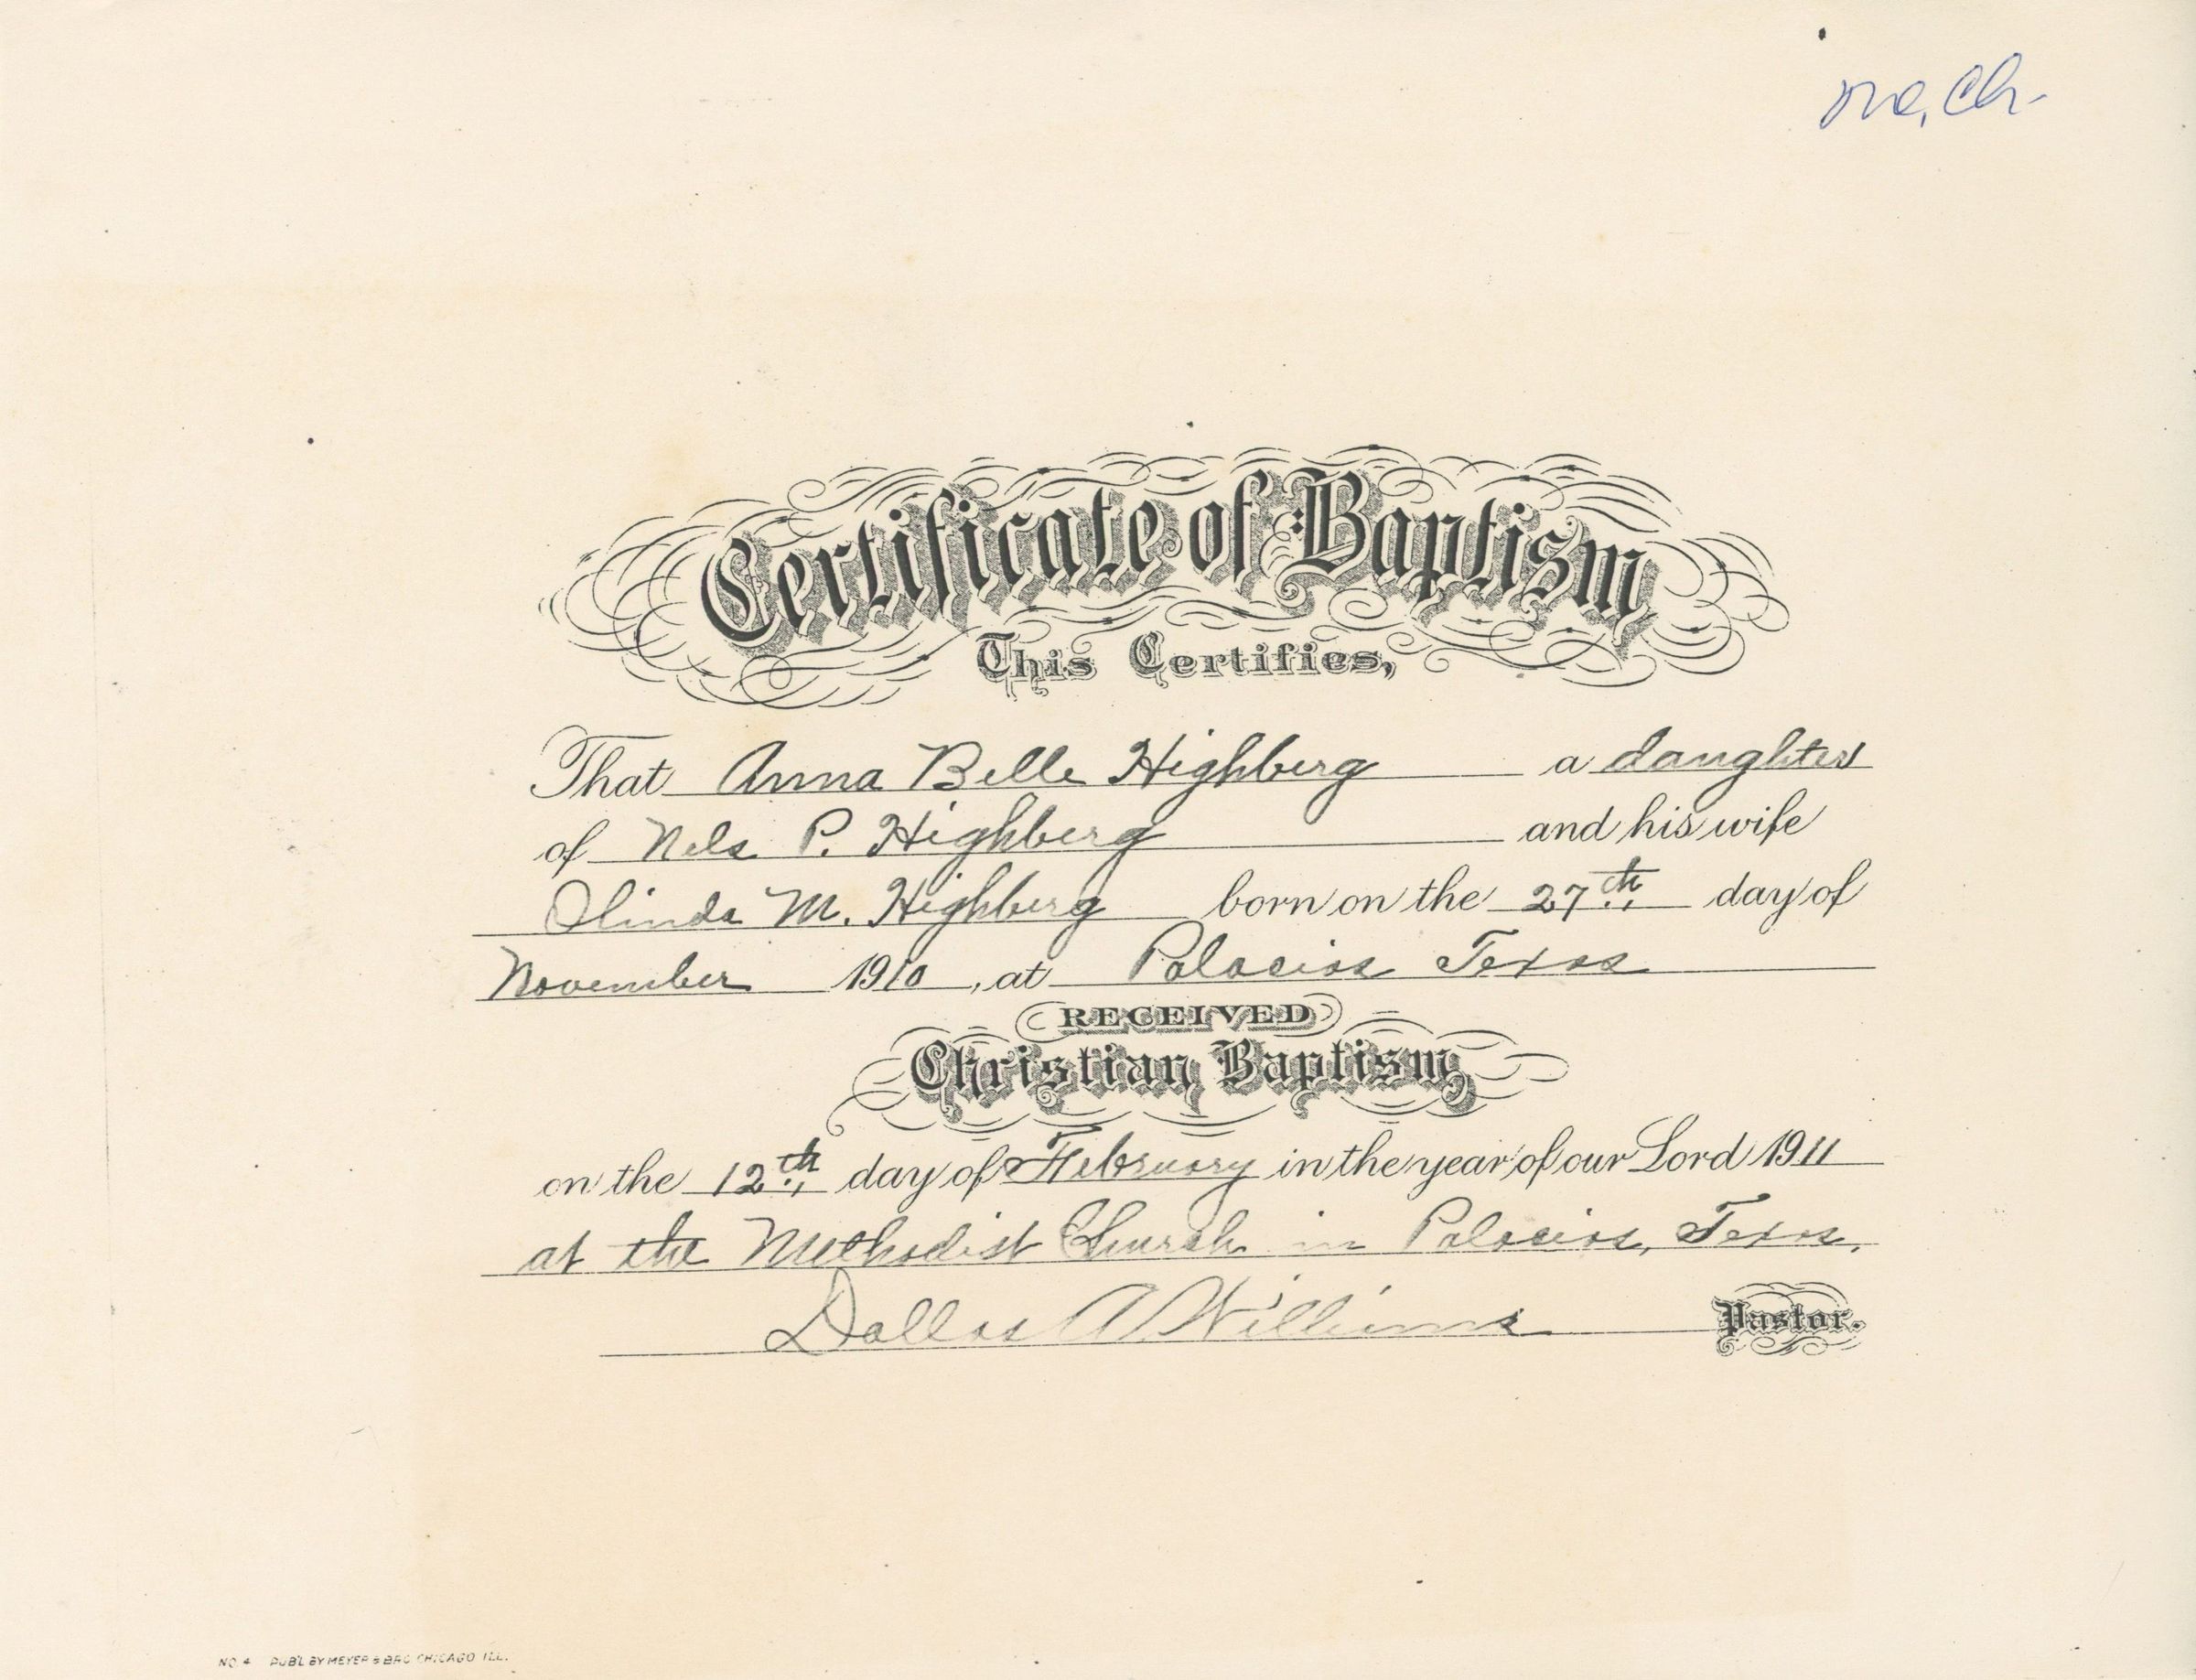 Certificate of Baptism
This Certifies,
That Anna Belle Highberg a daughter
of Nels P. Highberg and his wife
Olinda M. Highberg born on the 27th day of
November 1910, at Palacios Texas
RECEIVED
Christian Baptism
on the 12th day of February in the year of our Lord 1911
at the Methodist Church in Palacios, Texas.
Dallas A Williams Pastor.
NO. 4 PUB'L BY MEYER & BRO. CHICAGO ILL.